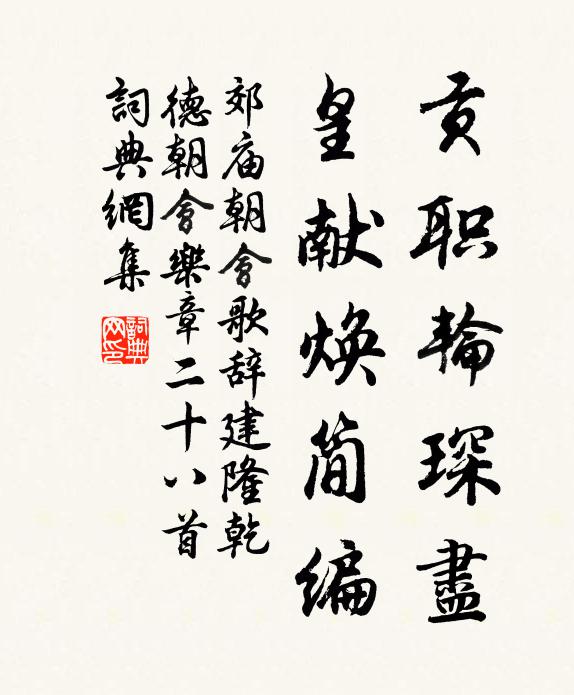 贡职轮琛盡
皇献焕简编
郊庙朝会歌辞建隆乾
德朝會樂章二十八首
詞典網集
詞典网印